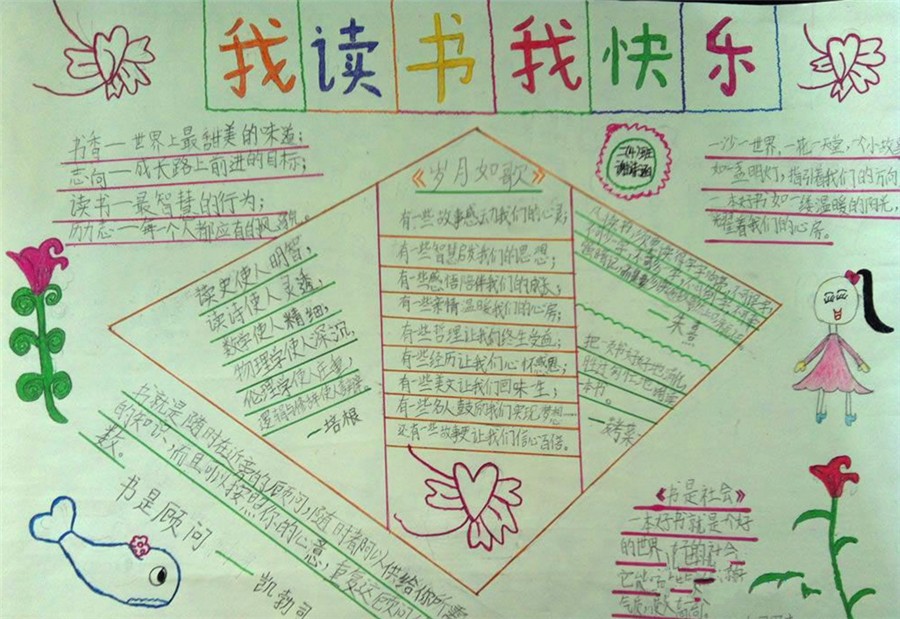 我读书我快乐
书香—世界上最甜美的味道;
志向—成长路上前进的目标;
读书—最智慧的行为;
励志—每一个人都应有的
读史使人明智,
读诗使人灵透,
数学使人精细,
物理学使人深沉,
伦理学使人庄重,
逻辑与修辞使人善辩。
—培根
《岁月如歌》
有一些故事感动我们的心灵;
有一些智慧启发我们的思想;
有一些感悟陪伴我们的成长;
有一些亲情温暖我们的心房;
有一些哲理让我们终生受益;
有一些经历让我们心怀感恩;
有一些美文让我们回味一生;
有一些名人鼓励我们实现梦想……
还有一些故事让我们信心百倍。
一沙一世界,一花一天堂,一个小故事
如一盏明灯,指引着我们的方向
一本好书如一缕温暖的阳光,
照耀着我们的心房。
—朱熹
把一页书好好地消化,
胜过匆忙地阅读
本书。
书就是随时在近旁的顾问,随时都可以供给你所需
的知识,而且可以按照你的心意,重复这顾问
数。
书是顾问
—凯勃司
《书是社会》
一本好书就是一个好
的世界,好的社会